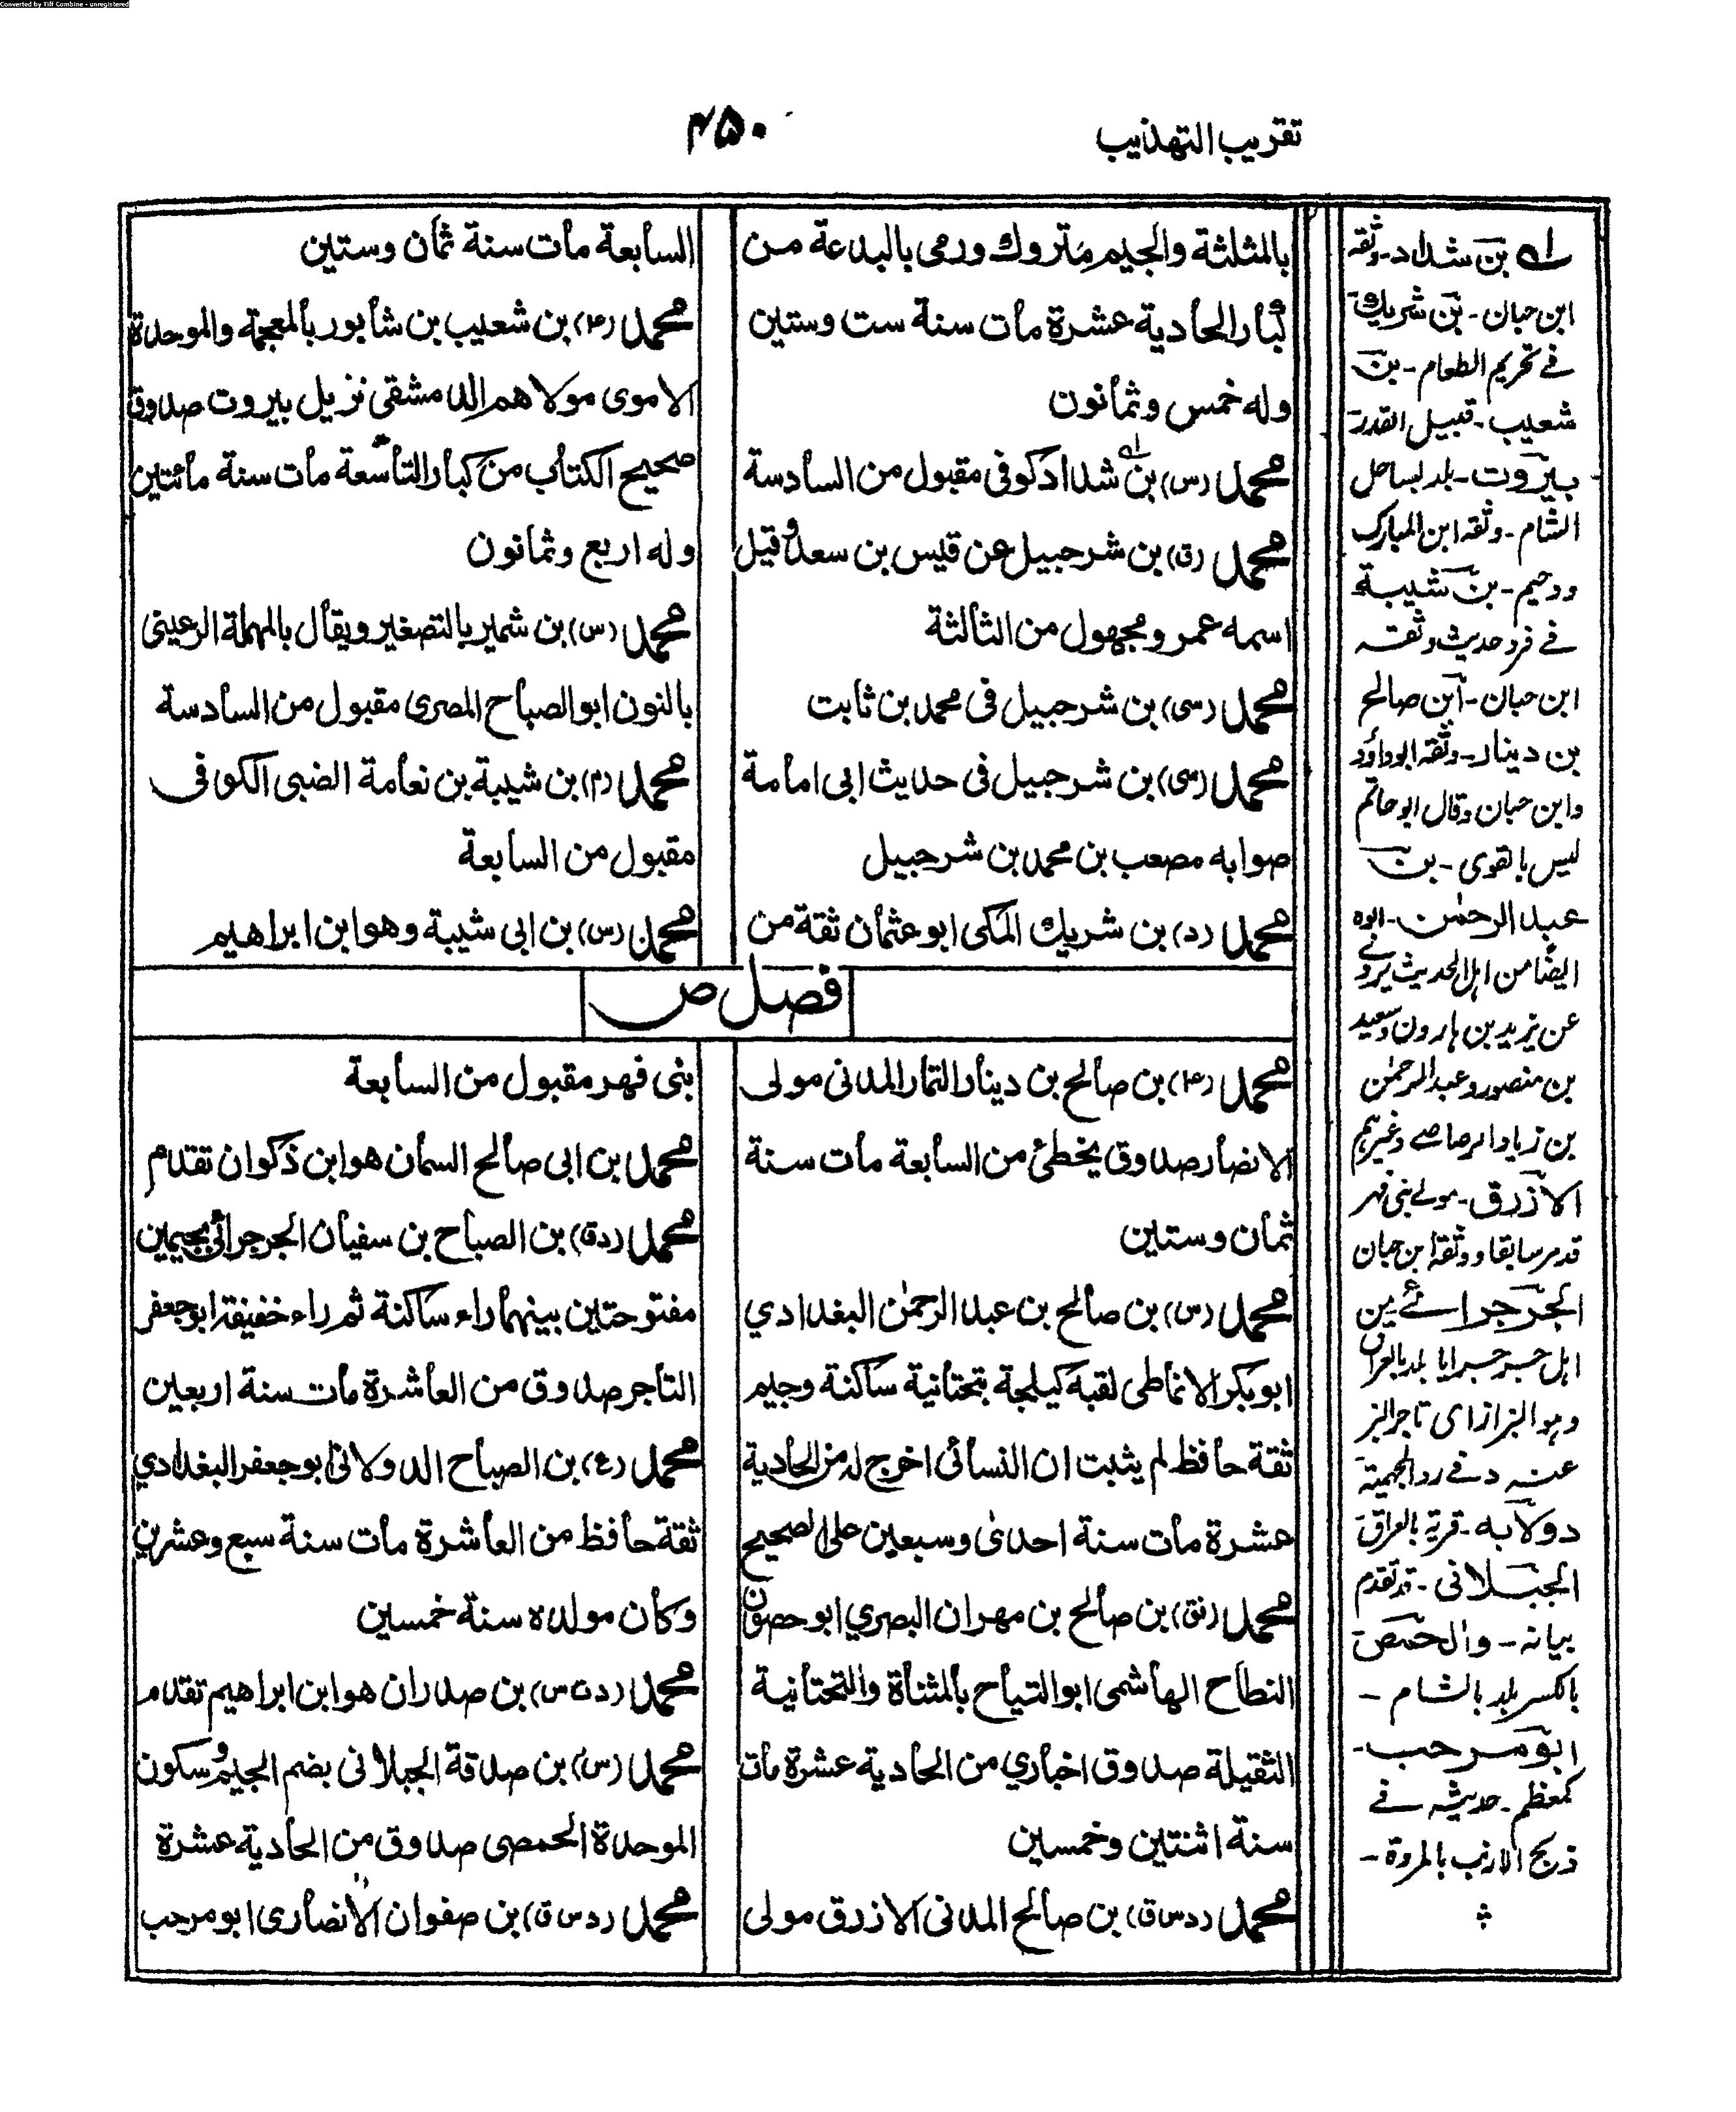 Converted by Tiff Combine - unregistered
تقريب التهذيب
۴۵۰
بالمثلثة والجيم متروك ورمى بالبدعة من
كبار الحادية عشرة مات سنة ست وستين
وله خمس وثمانون
محمد (س) بن شداد كوفى مقبول من السادسة
محمد (ق) بن شرحبيل عن قيس بن سعد وقيل
اسمه عمر ومجهول من الثالثة
محمد (سى) بن شرحبيل فى محمد بن ثابت
محمد (سى) بن شرحبيل فى حديث ابى امامة
صوابه مصعب بن محمد بن شرحبيل
محمد (د) بن شريك المكى ابو عثمان ثقة من
السابعة مات سنة ثمان وستين
محمد (۴) بن شعيب بن شابور بالمعجمة والموحدة
الاموى مولاهم الدمشقى نزيل بيروت صدوق
صحيح الكتاب من كبار التاسعة مات سنة مائتين
وله اربع وثمانون
محمد (س) بن شمير بالتصغير ويقال بالمهملة الرعينى
بالنون ابو الصباح المصرى مقبول من السادسة
محمد (م) بن شيبة بن نعامة الضبى الكوفى
مقبول من السابعة
محمد (س) بن ابى شيبة وهو ابن ابراهيم
فصل ص
محمد (۴) بن صالح بن دينار التمار المدنى مولى
الانصار صدوق يخطئ من السابعة مات سنة
ثمان وستين
محمد (س) بن صالح بن عبد الرحمٰن البغدادي
ابو بكر الانماطى لقبه كيلجة بتحتانية ساكنة وجيم
ثقة حافظ لم يثبت ان النسائى اخرج له من الحادية
عشرة مات سنة احدىٰ وسبعين على الصحيح
محمد (فق) بن صالح بن مهران البصري ابو
النطاح الهاشمى ابو التياح بالمثناة والتحتانية
الثقيلة صدوق اخباري من الحادية عشرة مات
سنة اثنتين وخمسين
محمد (د س ق) بن صالح المدنى الازرق مولى
بنى فهر مقبول من السابعة
محمد بن ابى صالح السمان هو ابن ذكوان تقدم
محمد (د ق) بن الصباح بن سفيان الجرجرائى بجيمين
مفتوحتين بينهما راء ساكنة ثم راء خفيفة ابو جعفر
التاجر صدوق من العاشرة مات سنة اربعين
محمد (ع) بن الصباح الدولابى ابو جعفر البغدادي
ثقة حافظ من العاشرة مات سنة سبع وعشرين
وكان مولده سنة خمسين
محمد (د ت س) بن صدران هو ابن ابراهيم تقدم
محمد (س) بن صدقة الجبلانى بضم الجيم وسكون
الموحدة الحمصى صدوق من الحادية عشرة
محمد (د س ق) بن صفوان الانصارى ابو مرحب
له بن شداد - وثقه
ابن حبان - بن شريك
فے تحريم الطعام - بن
شعيب - قبيل القدر
بيروت - بلد بساحل
الشام - وثقه ابن المبارك
ودحيم - بن شيبة
فے فرد حديث وثقه
ابن حبان - ابن صالح
بن دينار - وثقه ابو داؤد
وابن حبان وقال ابو حاتم
ليس بالقوى - بن
عبد الرحمٰن - ابوه
ايضا من اهل الحديث يروے
عن يزيد بن هارون وسعيد
بن منصور وعبد الرحمٰن
بن زياد الرصاصے وغيرهم
الازرق - مولے بنى فهر
قدم سابقا ووثقه ابن حبان
الجرجرائے من
اهل جرجرايا بلد بالعراق
وهو البزاز اى تاجر البز
عنه د فے رد الجهمية
دولابه - قرية بالعراق
الجبلانى - قد تقدم
بيانه - والحمص
بالكسر بلد بالشام -
ابو مرحب -
كمعظم - حديثه فے
ذبح الارنب بالمروة -